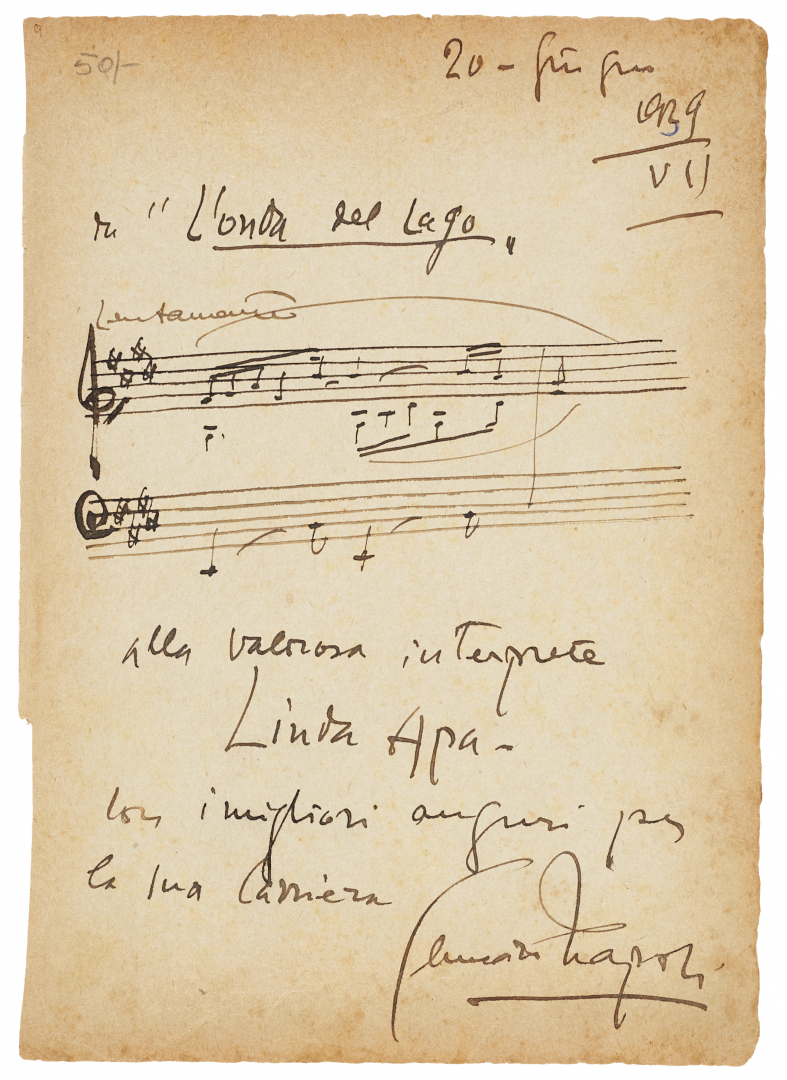 9
50/-
20 - Giugno
1939
VII
da "L'onda del Lago„
Lentamente
alla valorosa interprete
Linda Apa -
con i migliori auguri per
la sua carriera
Gennaro Napoli